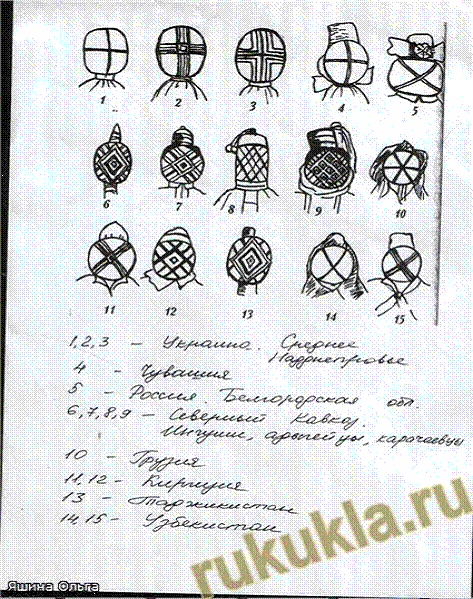 1 2 3 4 5
6 7 8 9 10
11 12 13 14 15
1,2,3 – Украина. Среднее
Надднепровье
4 – Чувашия
5 – Россия. Белгородская обл.
6,7,8,9 – Северный Кавказ.
Ингуши, адыгейцы, карачаевцы
10 – Грузия
11,12 – Киргизия
13 – Таджикистан
14,15 – Узбекистан
rukukla.ru
Яшина Ольга